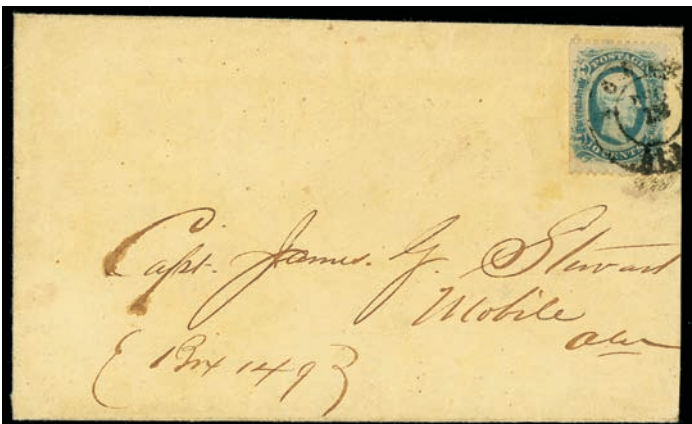 POSTAGE
10 CENTS
ALA
Capt. James. G. Stewart
Mobile
Ala
{ Box 149 }